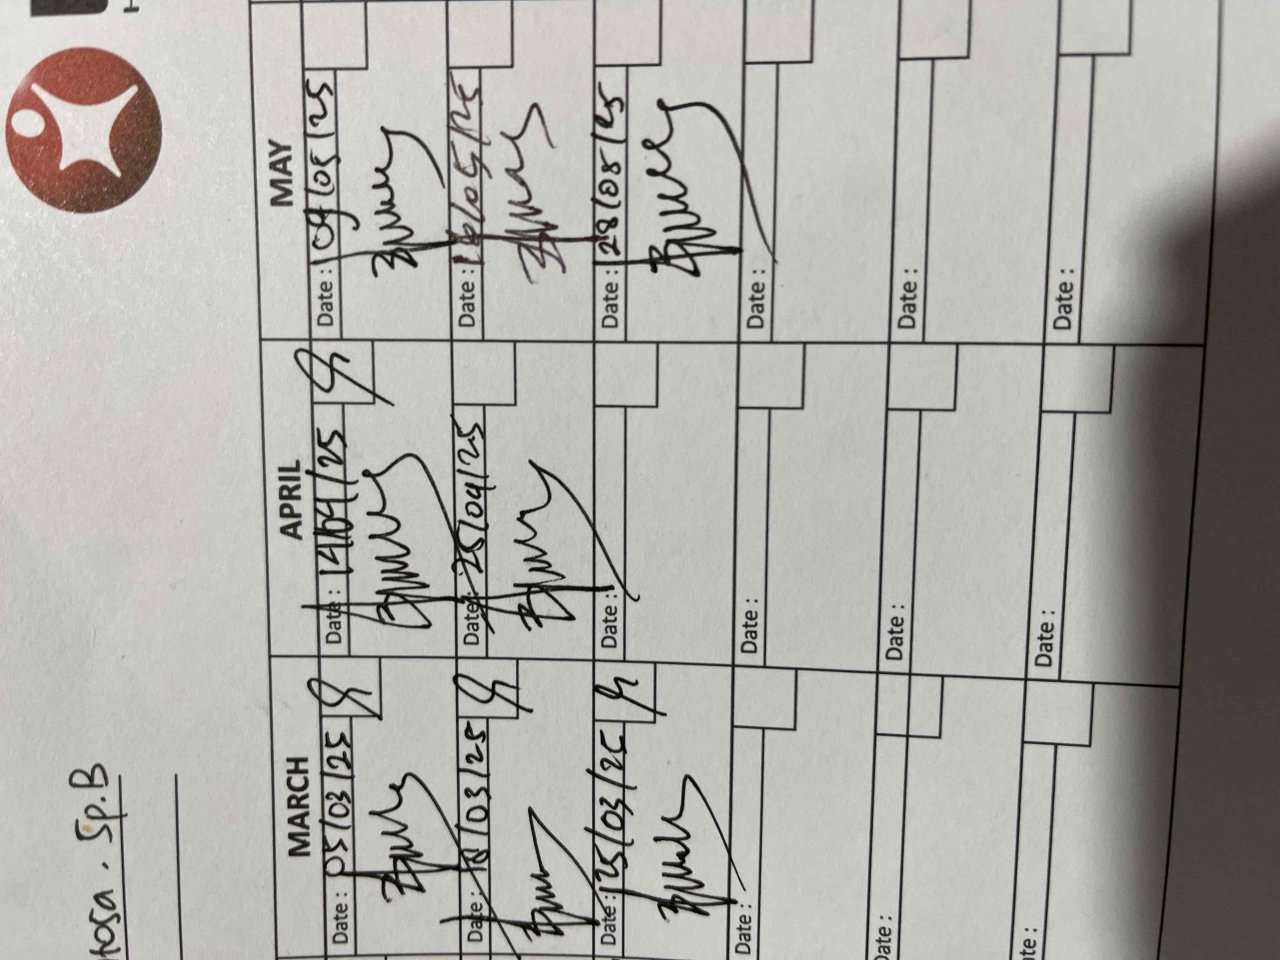 tosa . Sp.B
MARCH APRIL MAY
Date : 05/03/25 Date : 14/04/25 Date : 09/05/25
Date : 18/03/25 Date : 25/04/25 Date : 16/05/25
Date : 25/03/25 Date : Date : 28/05/25
Date : Date : Date :
Date : Date : Date :
te : Date : Date :